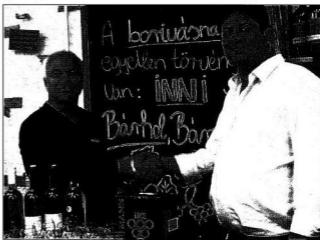 A borivásna
egyetlen törvén
van: INNI
Bárhol, Bár